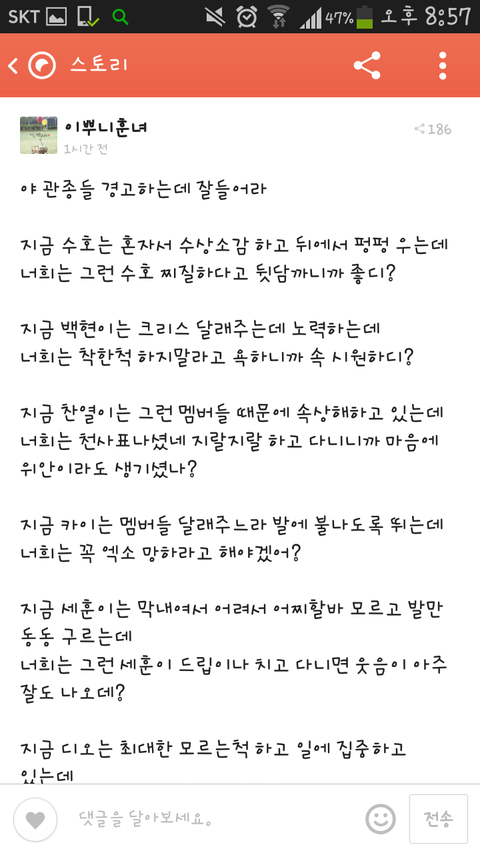 SKT 47% 오후 8:57
스토리
이뿌니훈녀
186
1시간 전
야 관종들 경고하는데 잘들어라
지금 수호는 혼자서 수상소감 하고 뒤에서 펑펑 우는데
너희는 그런 수호 찌질하다고 뒷담까니까 좋디?
지금 백현이는 크리스 달래주는데 노력하는데
너희는 착한척 하지말라고 욕하니까 속 시원하디?
지금 찬열이는 그런 멤버들 때문에 속상해하고 있는데
너희는 천사표나셨네 지랄지랄 하고 다니니까 마음에
위안이라도 생기셨나?
지금 카이는 멤버들 달래주느라 발에 불나도록 뛰는데
너희는 꼭 엑소 망하라고 해야겠어?
지금 세훈이는 막내여서 어려서 어찌할바 모르고 발만
동동 구르는데
너희는 그런 세훈이 드립이나 치고 다니면 웃음이 아주
잘도 나오데?
지금 디오는 최대한 모르는척 하고 일에 집중하고
있는데
댓글을 달아보세요.
전송